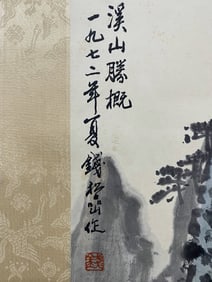 溪山勝概
一九七二年夏錢松喦作